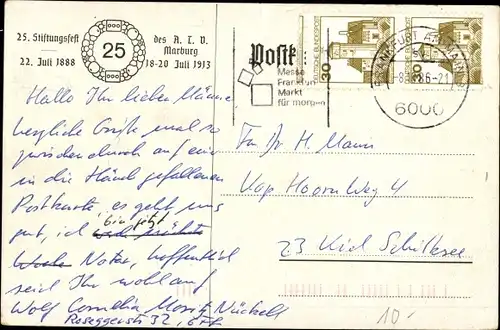 25. Stiftungsfest
22. Juli 1888
25
des A. T. V.
Marburg
18-20 Juli 1913
Postk
Messe
Frankfurt
Markt
für morgen
DEUTSCHE BUNDESPOST
30
30
FRANKFURT AM MAIN
-8. 86-21
6000
Hallo Ihr lieben Männer
herzliche Grüße mal so
zwischendurch auf eine
in die Hände gefallenen
Postkarte, es geht uns
gut, ich bin jetzt
Notar, hoffentlich
seid Ihr wohlauf
Wolf Cornelia Moritz Nückell
Roseggerstr 32, 6 Ff
H. Mann
Kap Hoorn Weg 4
23 Kiel Schilksee
10.-